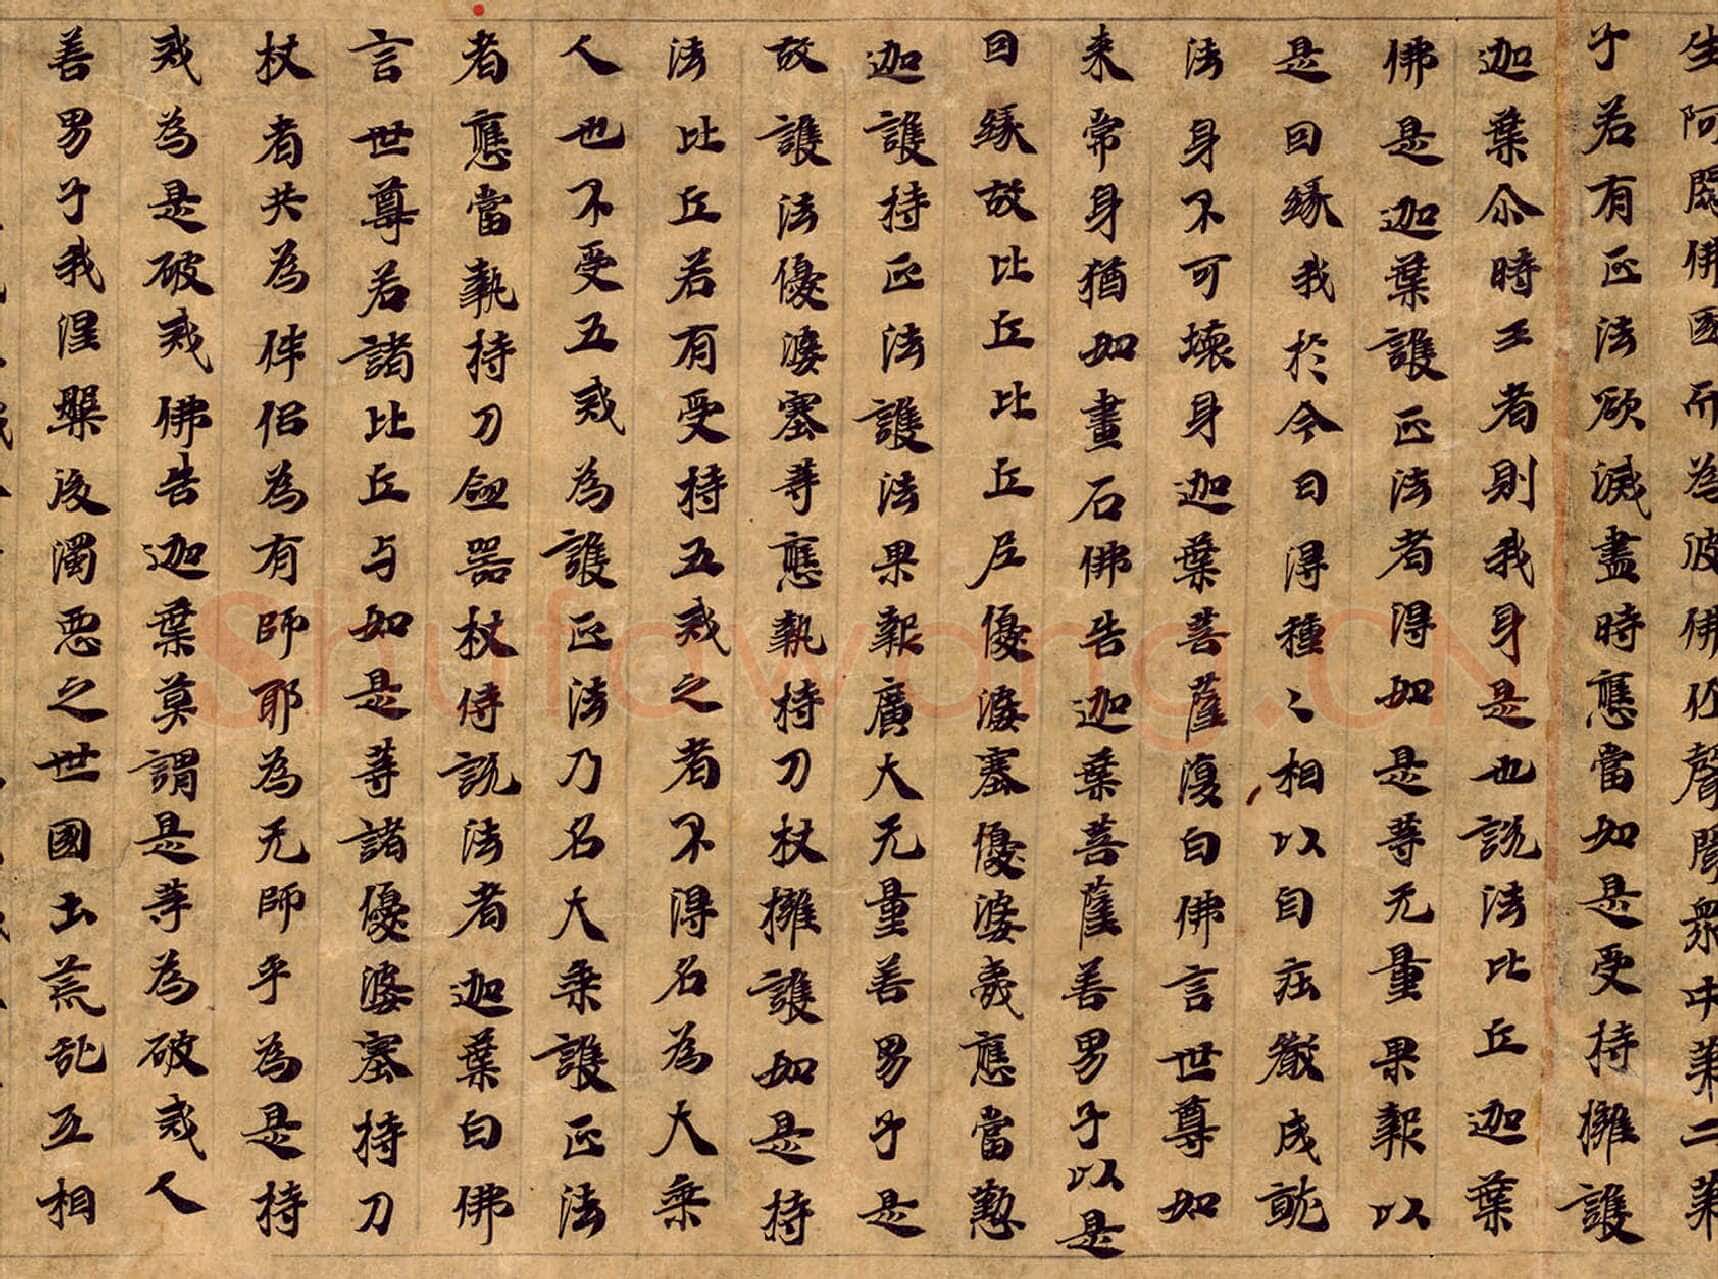 生阿閦佛國而為彼佛作聲聞眾中第二弟
子若有正法欲滅盡時應當如是受持擁護
迦葉尒時王者則我身是也說法比丘迦葉
佛是迦葉護正法者得如是等无量果報以
是因緣我於今日得種〻相以自莊嚴成就
法身不可壞身迦葉菩薩復白佛言世尊如
来常身猶如畫石佛告迦葉菩薩善男子以是
因緣故比丘比丘尼優婆塞優婆夷應當懃
迦護持正法護法果報廣大无量善男子是
故護法優婆塞等應執持刀杖擁護如是持
法比丘若有受持五戒之者不得名為大乘
人也不受五戒為護正法乃名大乘護正法
者應當執持刀劒器杖侍說法者迦葉白佛
言世尊若諸比丘与如是等諸優婆塞持刀
杖者共為伴侶為有師耶為无師乎為是持
戒為是破戒佛告迦葉莫謂是等為破戒人
善男子我涅槃後濁惡之世國土荒乱互相
Shufawang.CN